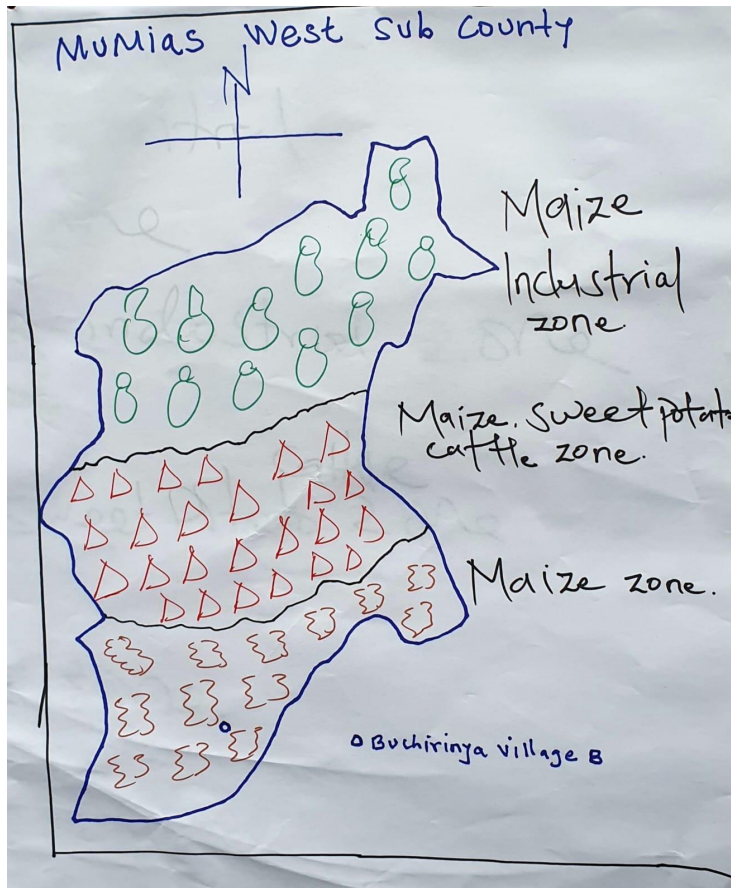 MuMias West Sub County
N
Maize
Industrial
zone.
Maize. sweet potato
cattle zone.
Maize zone.
Buchirinya village B